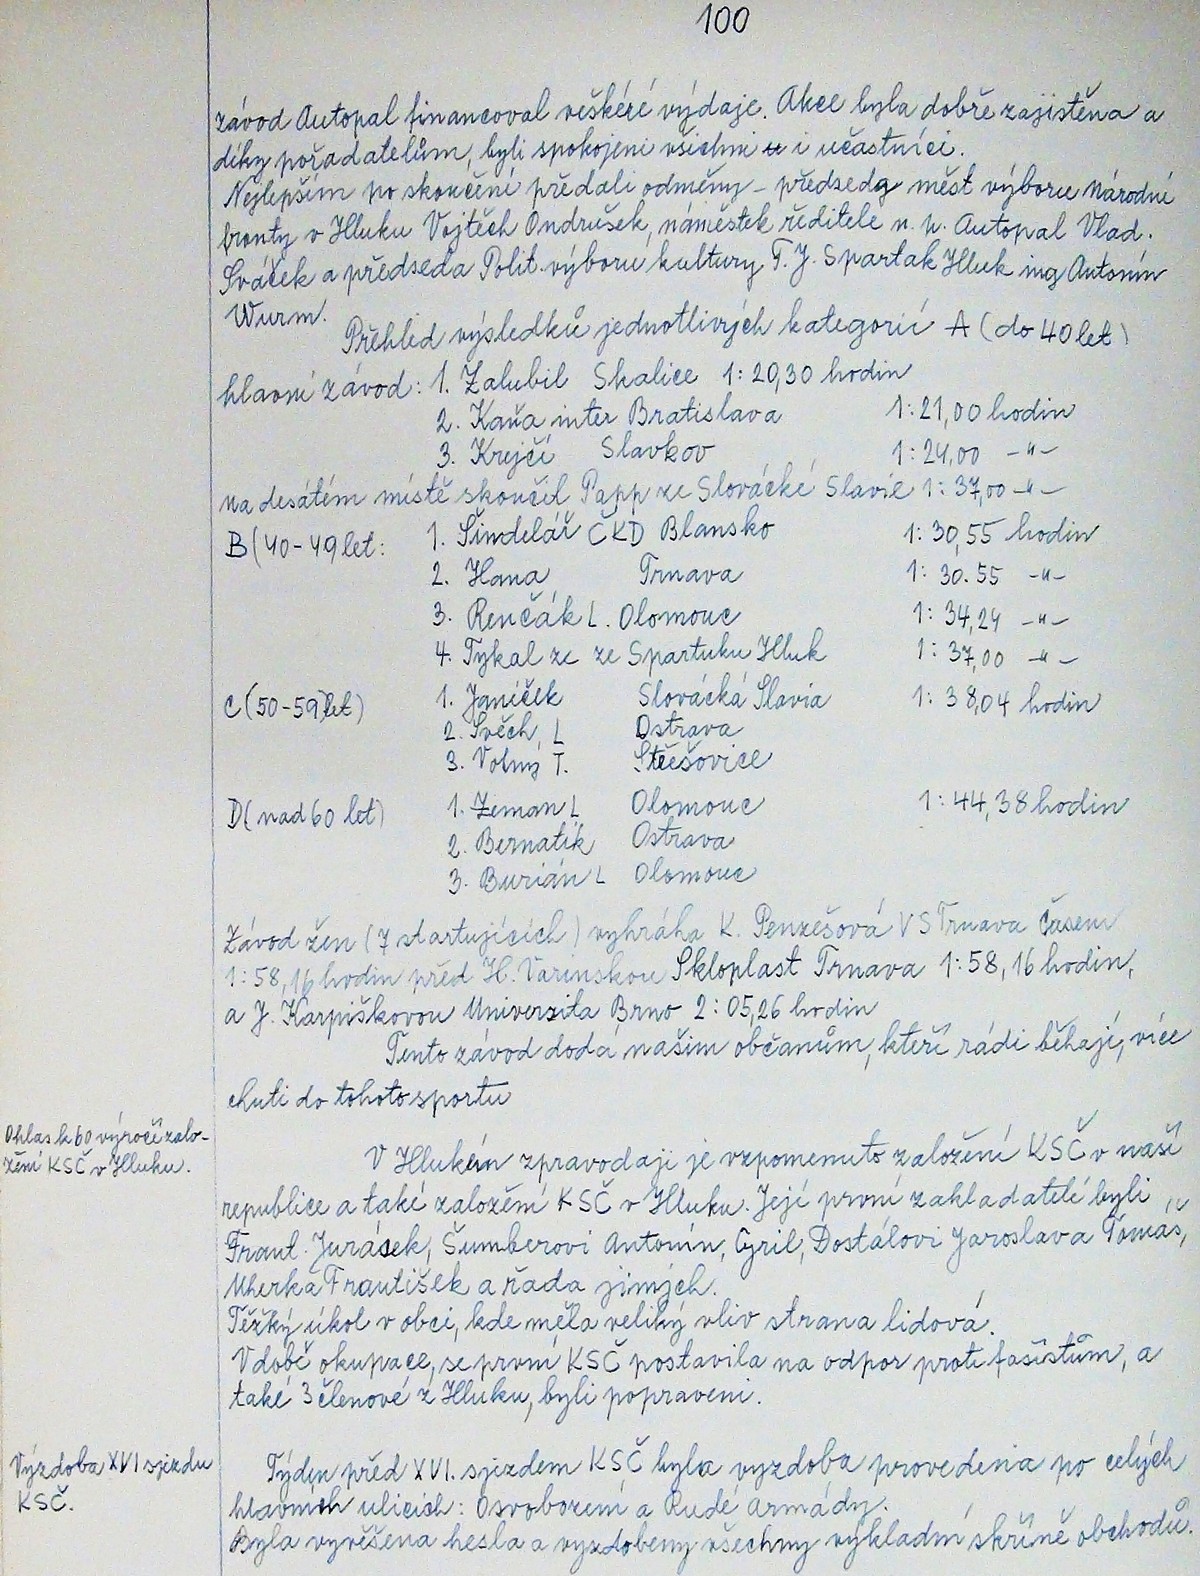 100
závod Autopal financoval veškeré výdaje. Akce byla dobře zajištěna a
díky pořadatelům, byli spokojeni všichni i učastníci.
Nejlepším po skončení předali odměny - předseda měst výboru Národní
fronty v Hluku Vojtěch Ondrušek, náměstek ředitele n. p. Autopal Vlad.
Sváček a předseda Polit. výboru kultury T. J. Spartak Hluk ing Antonín
Wurm.
Přehled výsledků jednotlivých kategorií A (do 40 let)
hlavní závod: 1. Zalubil Skalice 1:20,30 hodin
2. Kaňa inter Bratislava 1:21,00 hodin
3. Krejčí Slavkov 1:24,00 -"-
na desátém místě skončil Papp ze Slovácké Slavie 1:37,00 -"-
B (40-49 let: 1. Šindelář ČKD Blansko 1:30,55 hodin
2. Hana Trnava 1:30.55 -"-
3. Renčák L. Olomouc 1:34,24 -"-
4. Tykal ze ze Spartuku Hluk 1:37,00 -"-
C (50-59 let) 1. Janíček Slovácká Slavia 1:38,04 hodin
2. Svěch L Ostrava
3. Volný T. Střešovice
D (nad 60 let) 1. Zeman L Olomouc 1:44,38 hodin
2. Bernatík Ostrava
3. Burián L Olomouc
Závod žen (7 startujících) vyhrála K. Penzešová VS Trnava časem
1:58,16 hodin před H. Varinskou Skloplast Trnava 1:58,16 hodin,
a J. Karpíškovou Univerzita Brno 2:05,26 hodin
Tento závod dodá našim občanům, kteří rádi běhají, více
chuti do tohoto sportu
Ohlas k 60 výročí zalo-
žení KSČ v Hluku.
V Hluckém zpravodaji je vzpomenuto založení KSČ v naší
republice a také založení KSČ v Hluku. Její první zakladatelé byli
Frant. Jurásek, Šumberovi Antonín, Cyril, Dostálovi Jaroslava Tomáš,
Uherka František a řada jiných.
Těžký úkol v obci, kde měla veliký vliv strana lidová.
V době okupace, se první KSČ postavila na odpor proti fašistům, a
také 3 členové z Hluku, byli popraveni.
Výzdoba XVI sjezdu
KSČ.
Týden před XVI. sjezdem KSČ byla vyzdoba provedena po celých
hlavních ulicích: Osvobození a Rudé armády.
Byla vyvěšena hesla a vyzdobeny všechny výkladní skříně obchodů.